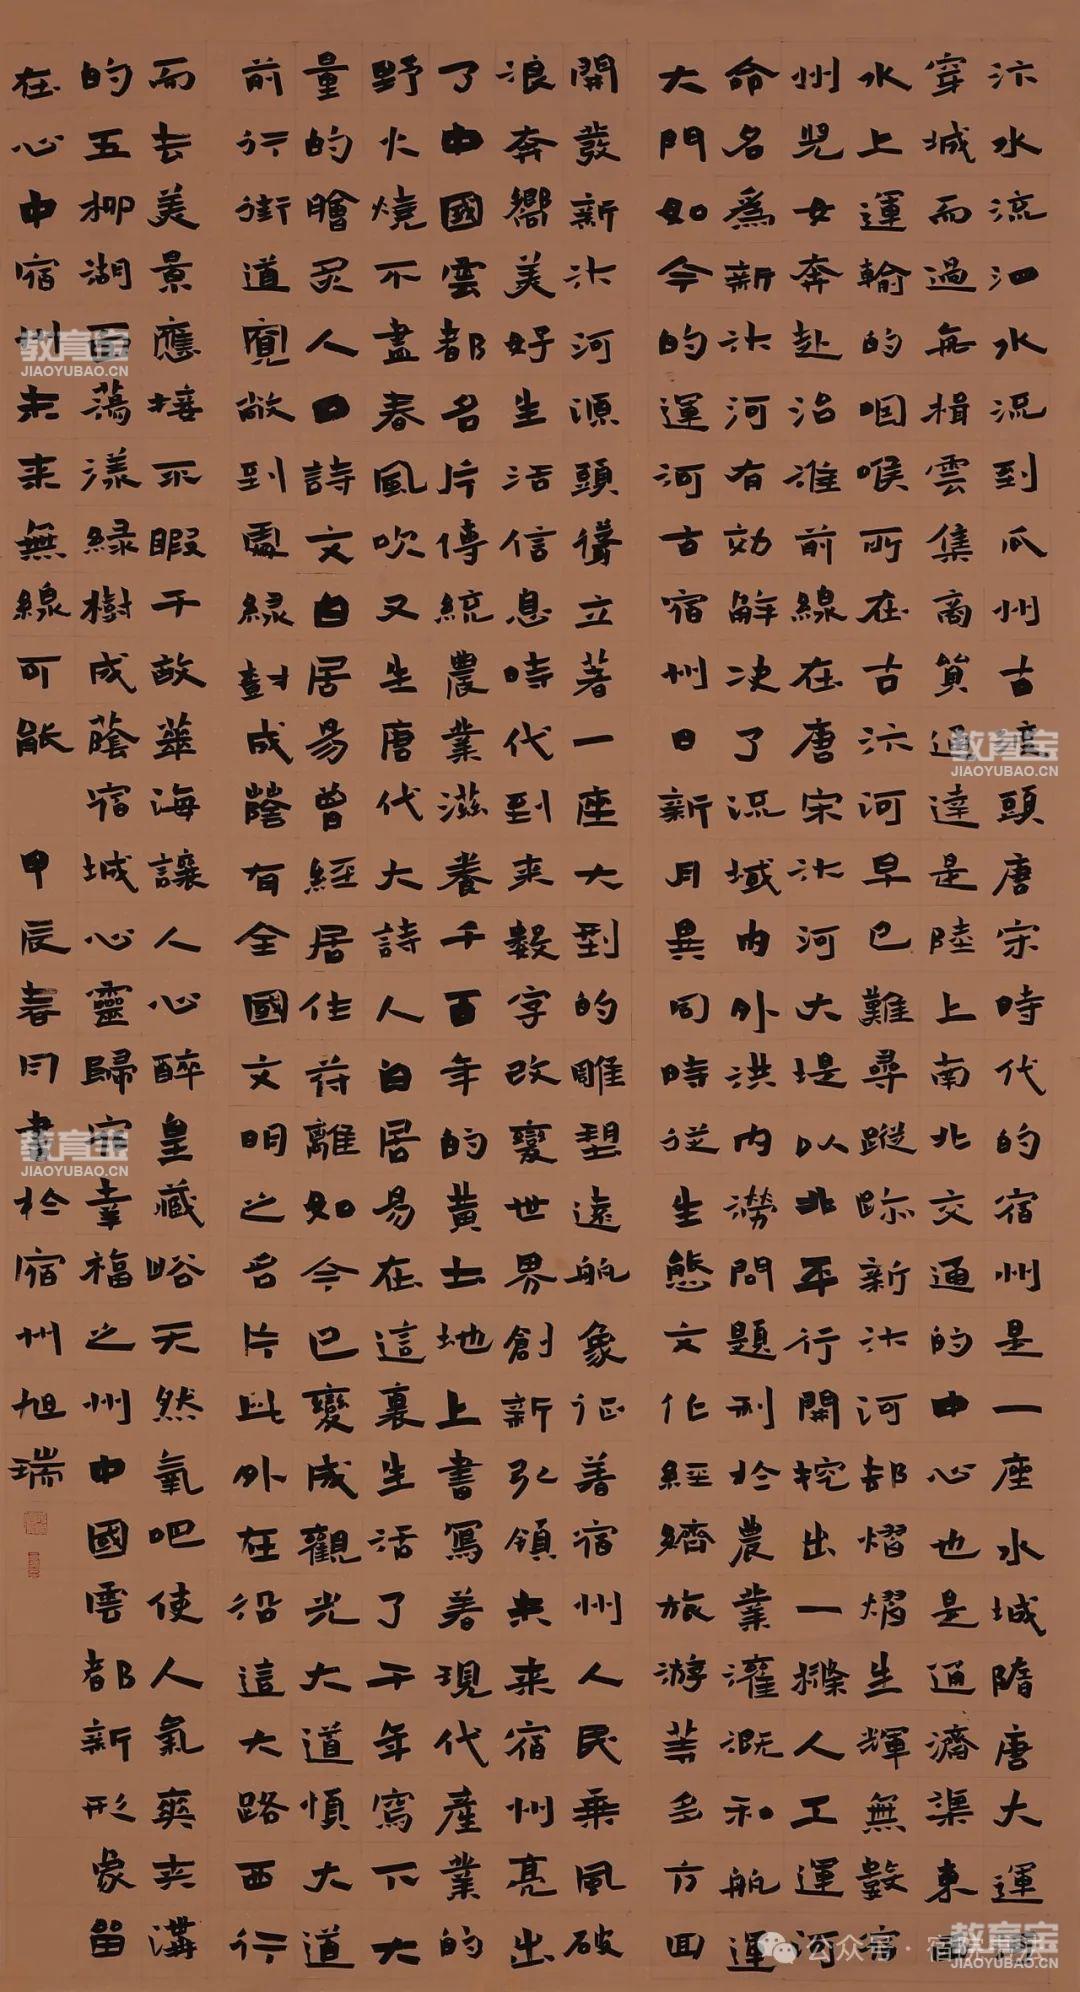 汴水流泗水流到瓜州古渡頭唐宋時代的宿州是一座水城隋唐大運河
穿城而過舟楫雲集商賈通達是陸上南北交通的中心也是通濟渠東西
水上運輸的咽喉所在古汴河早已難尋蹤跡新汴河却熠熠生輝無數宿
州兒女奔赴治淮前線在唐宋汴河大堤以北平行開挖出一條人工運河
命名爲新汴河有効解決了流域内外洪内澇問題利於農業灌溉和航運
大門如今的運河古宿州日新月異同時從生態文化經濟旅游等多方面
開發新汴河源頭聳立著一座大型的雕塑遠航象征着宿州人民乘風破
浪奔嚮美好生活信息時代到來數字改變世界創新引領未来宿州亮出
了中國雲都名片傳統農業滋養千百年的黄土地上書寫着現代產業的
野火燒不盡春風吹又生唐代大詩人白居易在這裏生活了千年寫下大
量的膾炙人口詩文白居易曾經居住符離如今已變成觀光大道慎大道
前行街道寬敞到處緑樹成蔭有全國文明之名片此外在沿這大路西行
而去美景應接不暇千畝華海讓人心醉皇藏峪天然氧吧使人氣爽夾溝
的五柳湖面蕩漾緑樹成蔭宿城心靈歸宿幸福之州中國雲都新形象留
在心中宿州未来無線可能 甲辰春月書於宿州旭瑞
教育宝
JIAOYUBAO.CN
教育宝
JIAOYUBAO.CN
教育宝
JIAOYUBAO.CN
教育宝
JIAOYUBAO.CN
公众号·宿院书法